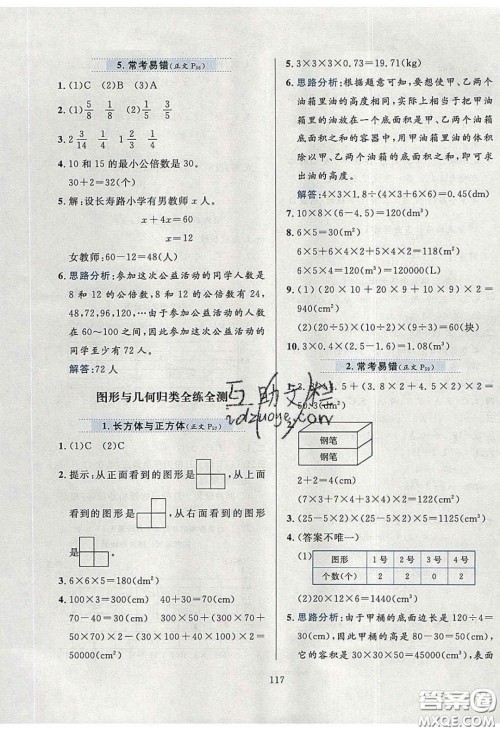 5. 常考易错(正文 P₃₆)
1. (1)C (2)B (3)A
2. (1) 5/8 1/8 (2) 1/5 1/8
3. 1 2/14 3/14 1 1/4
4. 10 和 15 的最小公倍数是 30。
30÷2=32(个)
5. 解:设长寿路小学有男教师 x 人。
x+4x=60
x=12
女教师:60-12=48(人)
6. 思路分析:参加这次公益活动的同学人数是
8 和 12 的公倍数,8 和 12 的公倍数有 24,
48,72,96,120,…由于参加公益活动的人数
在 60～100 之间,所以参加这次公益活动的
同学至少有 72 人。
解答:72 人
图形与几何归类全练全测
1. 长方体与正方体(正文 P₃₇)
1. (1)C (2)C
2. 提示:从正面看到的图形是 ,从上面
看到的图形是 ,从右面看到的图形
是 。
3. 6×6×5=180(dm²)
4. 100×3=300(cm)
70-40=30(cm) 300×(70×30)=
50000(cm²)
5. 3×3×3×0.73=19.71(kg)
6. 思路分析:根据题意可知,要使甲、乙两个
油箱里油的高度相同,实际上相当于把甲油箱里的
油放在一个底面积是甲、乙两个油箱
底面积之和的容器中,用甲油箱里油的体积
除以甲、乙两个油箱的底面积之和,即可求
出油的高度。
解答:4×3×1.8÷(4×3+6×6)=0.45(dm)
7. 10×8×(6-4)=160(cm³)
8. 6×5=30(m²)
6×5+6×4×2+5×4×2=118(m²)
6×5×4=120(m³)=120000(L)
9. (1)20×10+(20×9+10×9)×2=
940(cm²)
(2)(20÷5)×(10÷5)×(9÷1)=60(块)
10. 3×0.4×(1.9-1.8)=0.12(m³)
2. 常考易错(正文 P₃₉)
50.3(m²)
钢笔
钢笔
2+2=4(cm)
(7×3+7×4+3×4)×2=122(cm²)
3. (25-5×2)×(25-5×2)×5=1125(cm³)
4. (答案不唯一)
(1) 图形 1号 2号 4号
个数(个) 2 2 2
(2)20×12×6=1440(cm³)
5. 思路分析:由于甲桶的底面边长是 120÷4=
30(cm),因此甲桶的高是 80-30=50(cm),
它的容积是 30×30×50=45000(cm³),表面
117
互助文栏
idzuoye.com
答案圈
MXQE.COM